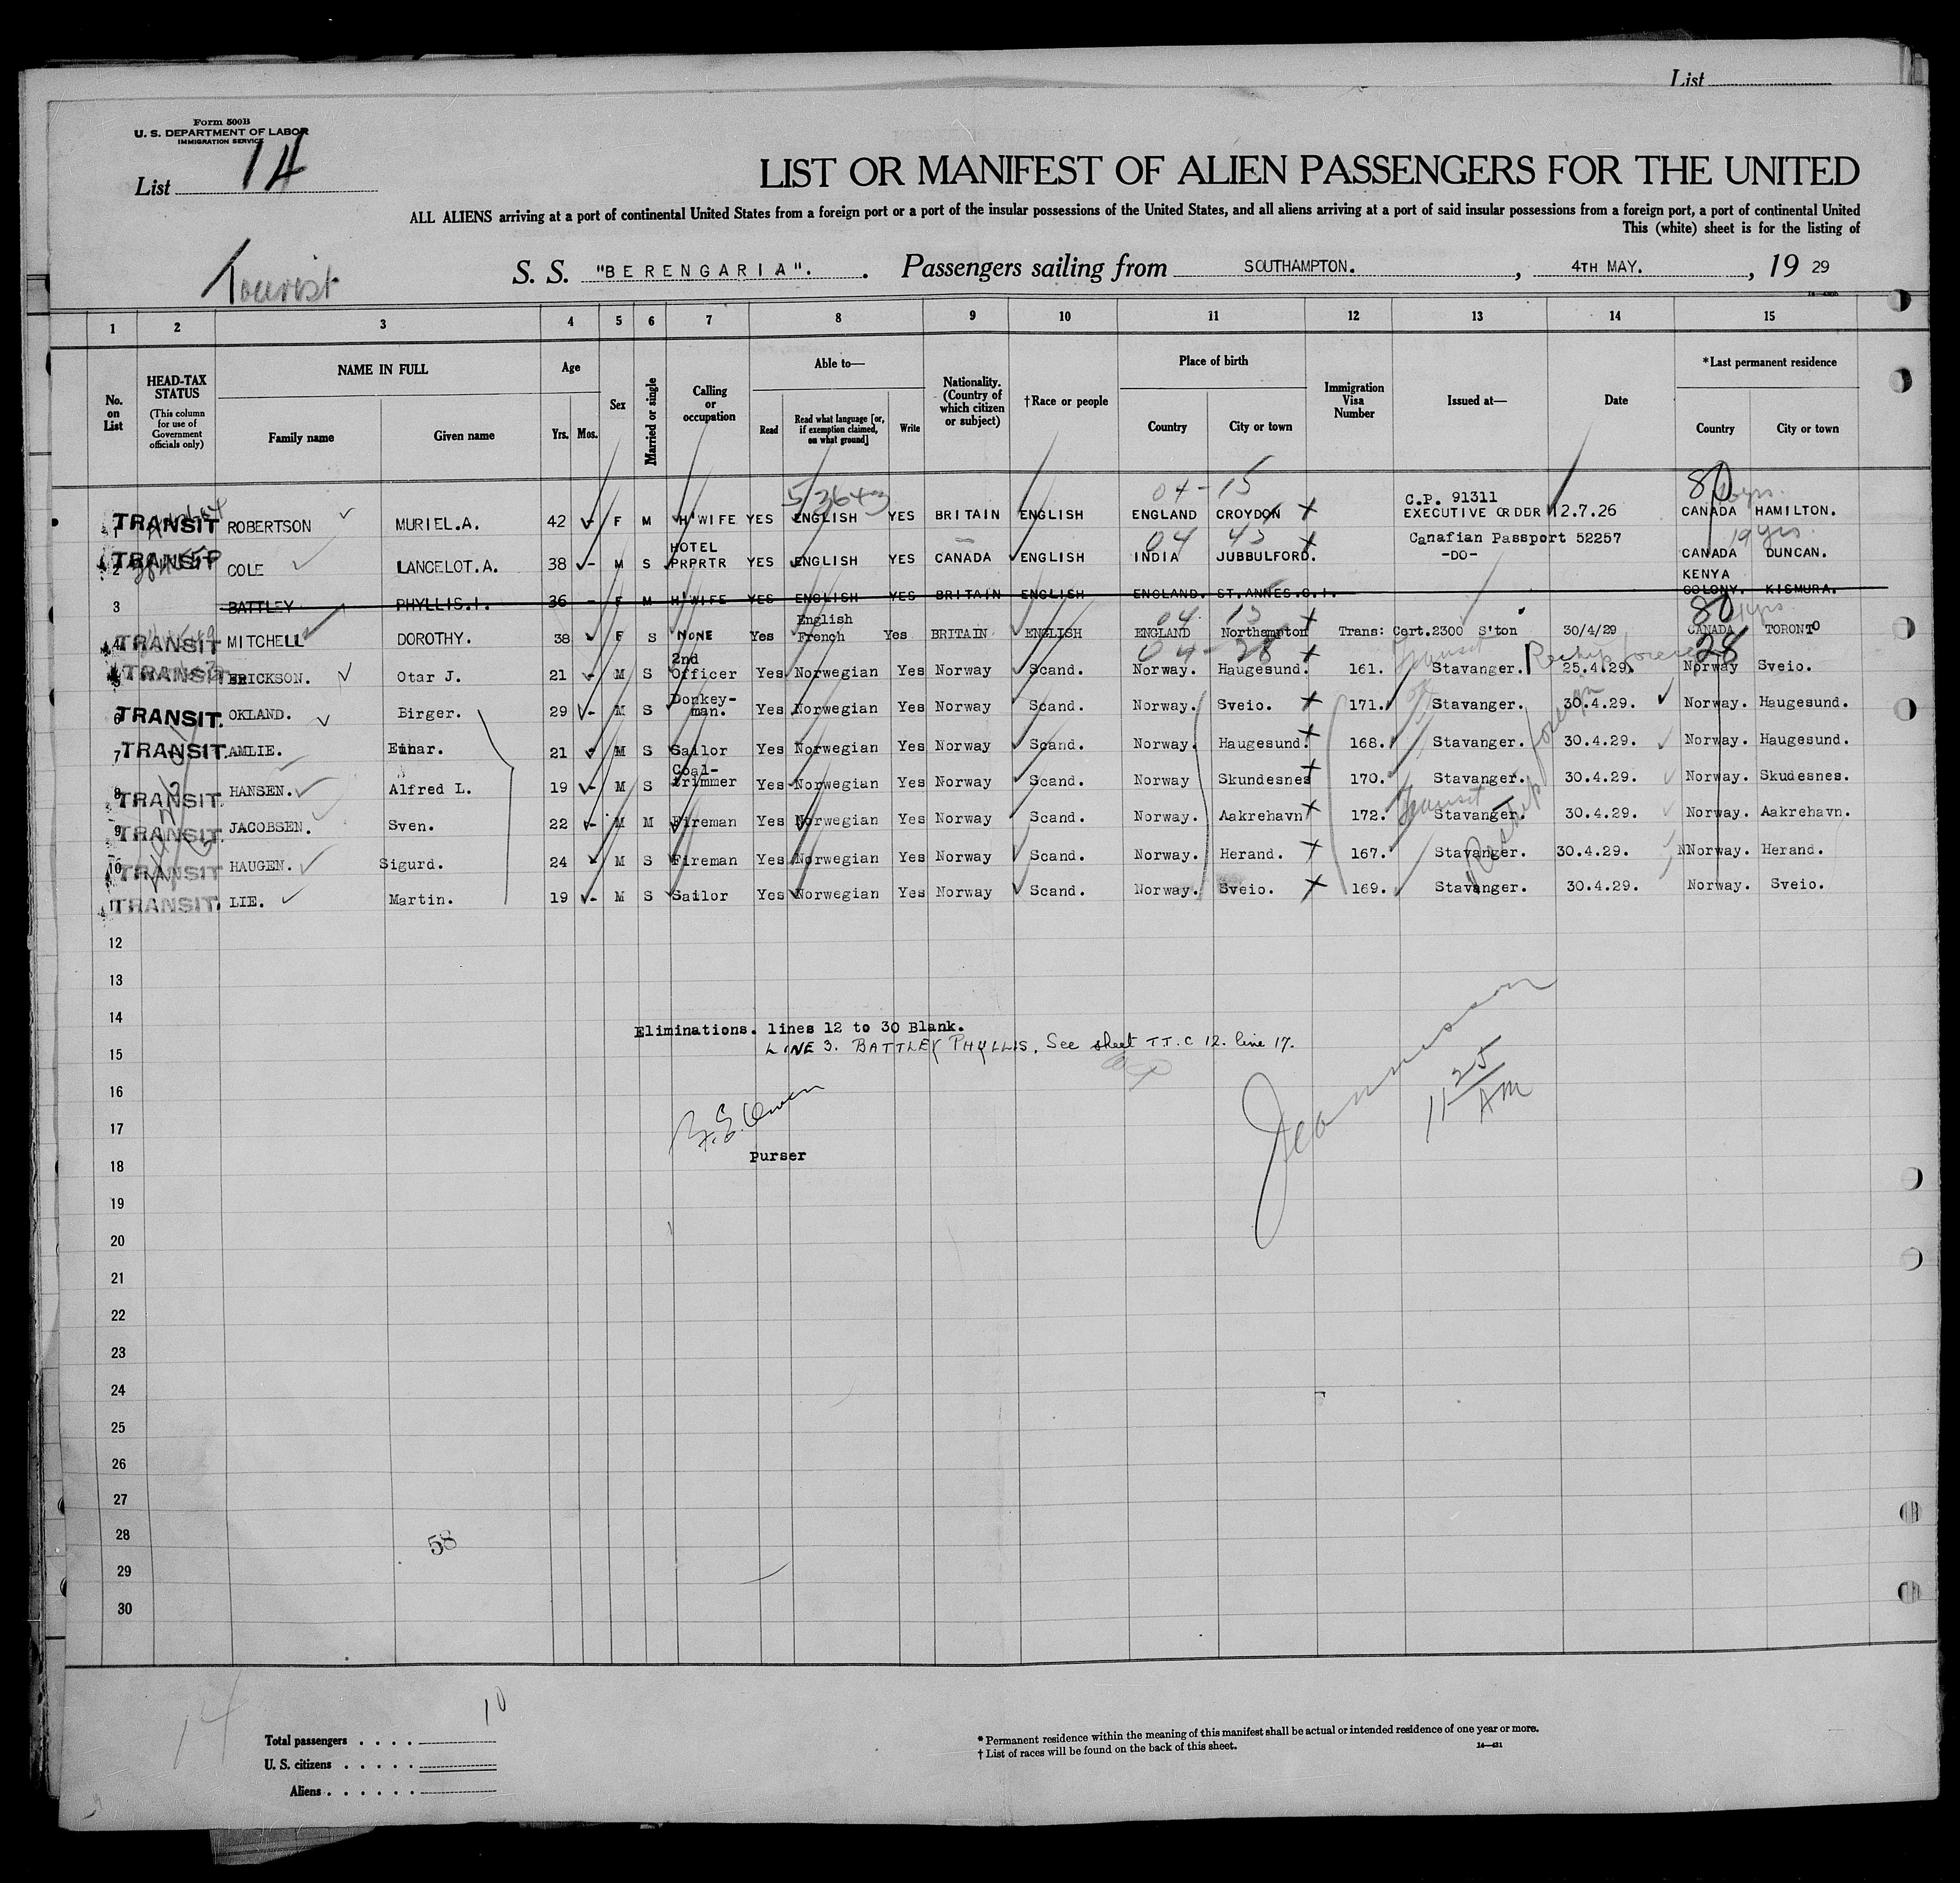 List
Form 500B
U. S. DEPARTMENT OF LABOR
IMMIGRATION SERVICE
List 14
LIST OR MANIFEST OF ALIEN PASSENGERS FOR THE UNITED
ALL ALIENS arriving at a port of continental United States from a foreign port or a port of the insular possessions of the United States, and all aliens arriving at a port of said insular possessions from a foreign port, a port of continental United
This (white) sheet is for the listing of
Tourist
S. S. "BERENGARIA". Passengers sailing from SOUTHAMPTON. , 4TH MAY. , 19 29
1 2 3 4 5 6 7 8 9 10 11 12 13 14 15
No. on List
HEAD-TAX STATUS
(This column for use of Government officials only)
NAME IN FULL
Family name Given name
Age
Yrs. Mos.
Sex
Married or single
Calling or occupation
Able to—
Read Read what language [or, if exemption claimed, on what ground] Write
Nationality. (Country of which citizen or subject)
†Race or people
Place of birth
Country City or town
Immigration Visa Number
Issued at—
Date
*Last permanent residence
Country City or town
53643 04-15 80
C.P. 91311
1 TRANSIT ROBERTSON MURIEL.A. 42 - F M H'WIFE YES ENGLISH YES BRITAIN ENGLISH ENGLAND CROYDON EXECUTIVE ORDER 12.7.26 CANADA HAMILTON.
04 43 Canafian Passport 52257 19 yrs.
2 TRANSIT COLE LANCELOT.A. 38 - M S HOTEL PRPRTR YES ENGLISH YES CANADA ENGLISH INDIA JUBBULFORD. -DO- CANADA DUNCAN.
3 BATTLEY PHYLLIS.I. 36 - F M H'WIFE YES ENGLISH YES BRITAIN ENGLISH ENGLAND. ST.ANNES.O.I. KENYA COLONY. KISMURA.
04 13 80
4 TRANSIT MITCHELL DOROTHY. 38 F S NONE Yes English French Yes BRITAIN ENGLISH ENGLAND Northampton Trans: Cert.2300 S'ton 30/4/29 CANADA TORONTO
04-28 Transit 28
5 TRANSIT ERICKSON. Otar J. 21 - M S 2nd Officer Yes Norwegian Yes Norway Scand. Norway. Haugesund. 161. Stavanger. 25.4.29. Norway Sveio.
6 TRANSIT. OKLAND. Birger. 29 - M S Donkey-man. Yes Norwegian Yes Norway Scand. Norway. Sveio. 171. Stavanger. 30.4.29. Norway. Haugesund.
7 TRANSIT. AMLIE. Einar. 21 M S Sailor Yes Norwegian Yes Norway Scand. Norway. Haugesund. 168. Stavanger. 30.4.29. Norway. Haugesund.
8 TRANSIT. HANSEN. Alfred L. 19 - M S Coal-trimmer Yes Norwegian Yes Norway Scand. Norway Skundesnes 170. Stavanger. 30.4.29. Norway. Skudesnes.
Transit
9 TRANSIT. JACOBSEN. Sven. 22 - M M Fireman Yes Norwegian Yes Norway Scand. Norway. Aakrehavn 172. Stavanger. 30.4.29. Norway. Aakrehavn.
10 TRANSIT HAUGEN. Sigurd. 24 M S Fireman Yes Norwegian Yes Norway Scand. Norway. Herand. 167. Stavanger. 30.4.29. NNorway. Herand.
11 TRANSIT. LIE. Martin. 19 - M S Sailor Yes Norwegian Yes Norway Scand. Norway. Sveio. 169. Stavanger. 30.4.29. Norway. Sveio.
Reship foreign
12
13
14
Eliminations. lines 12 to 30 Blank.
15 LINE 3. BATTLEY PHYLLIS. See sheet T.T.C 12. line 17.
16
11 25 AM
17
18 purser
19
20
21
22
23
24
25
26
27
28 58
29
30
14
10
Total passengers . . . .
U. S. citizens . . . . .
Aliens . . . . . .
* Permanent residence within the meaning of this manifest shall be actual or intended residence of one year or more.
† List of races will be found on the back of this sheet.
14—431